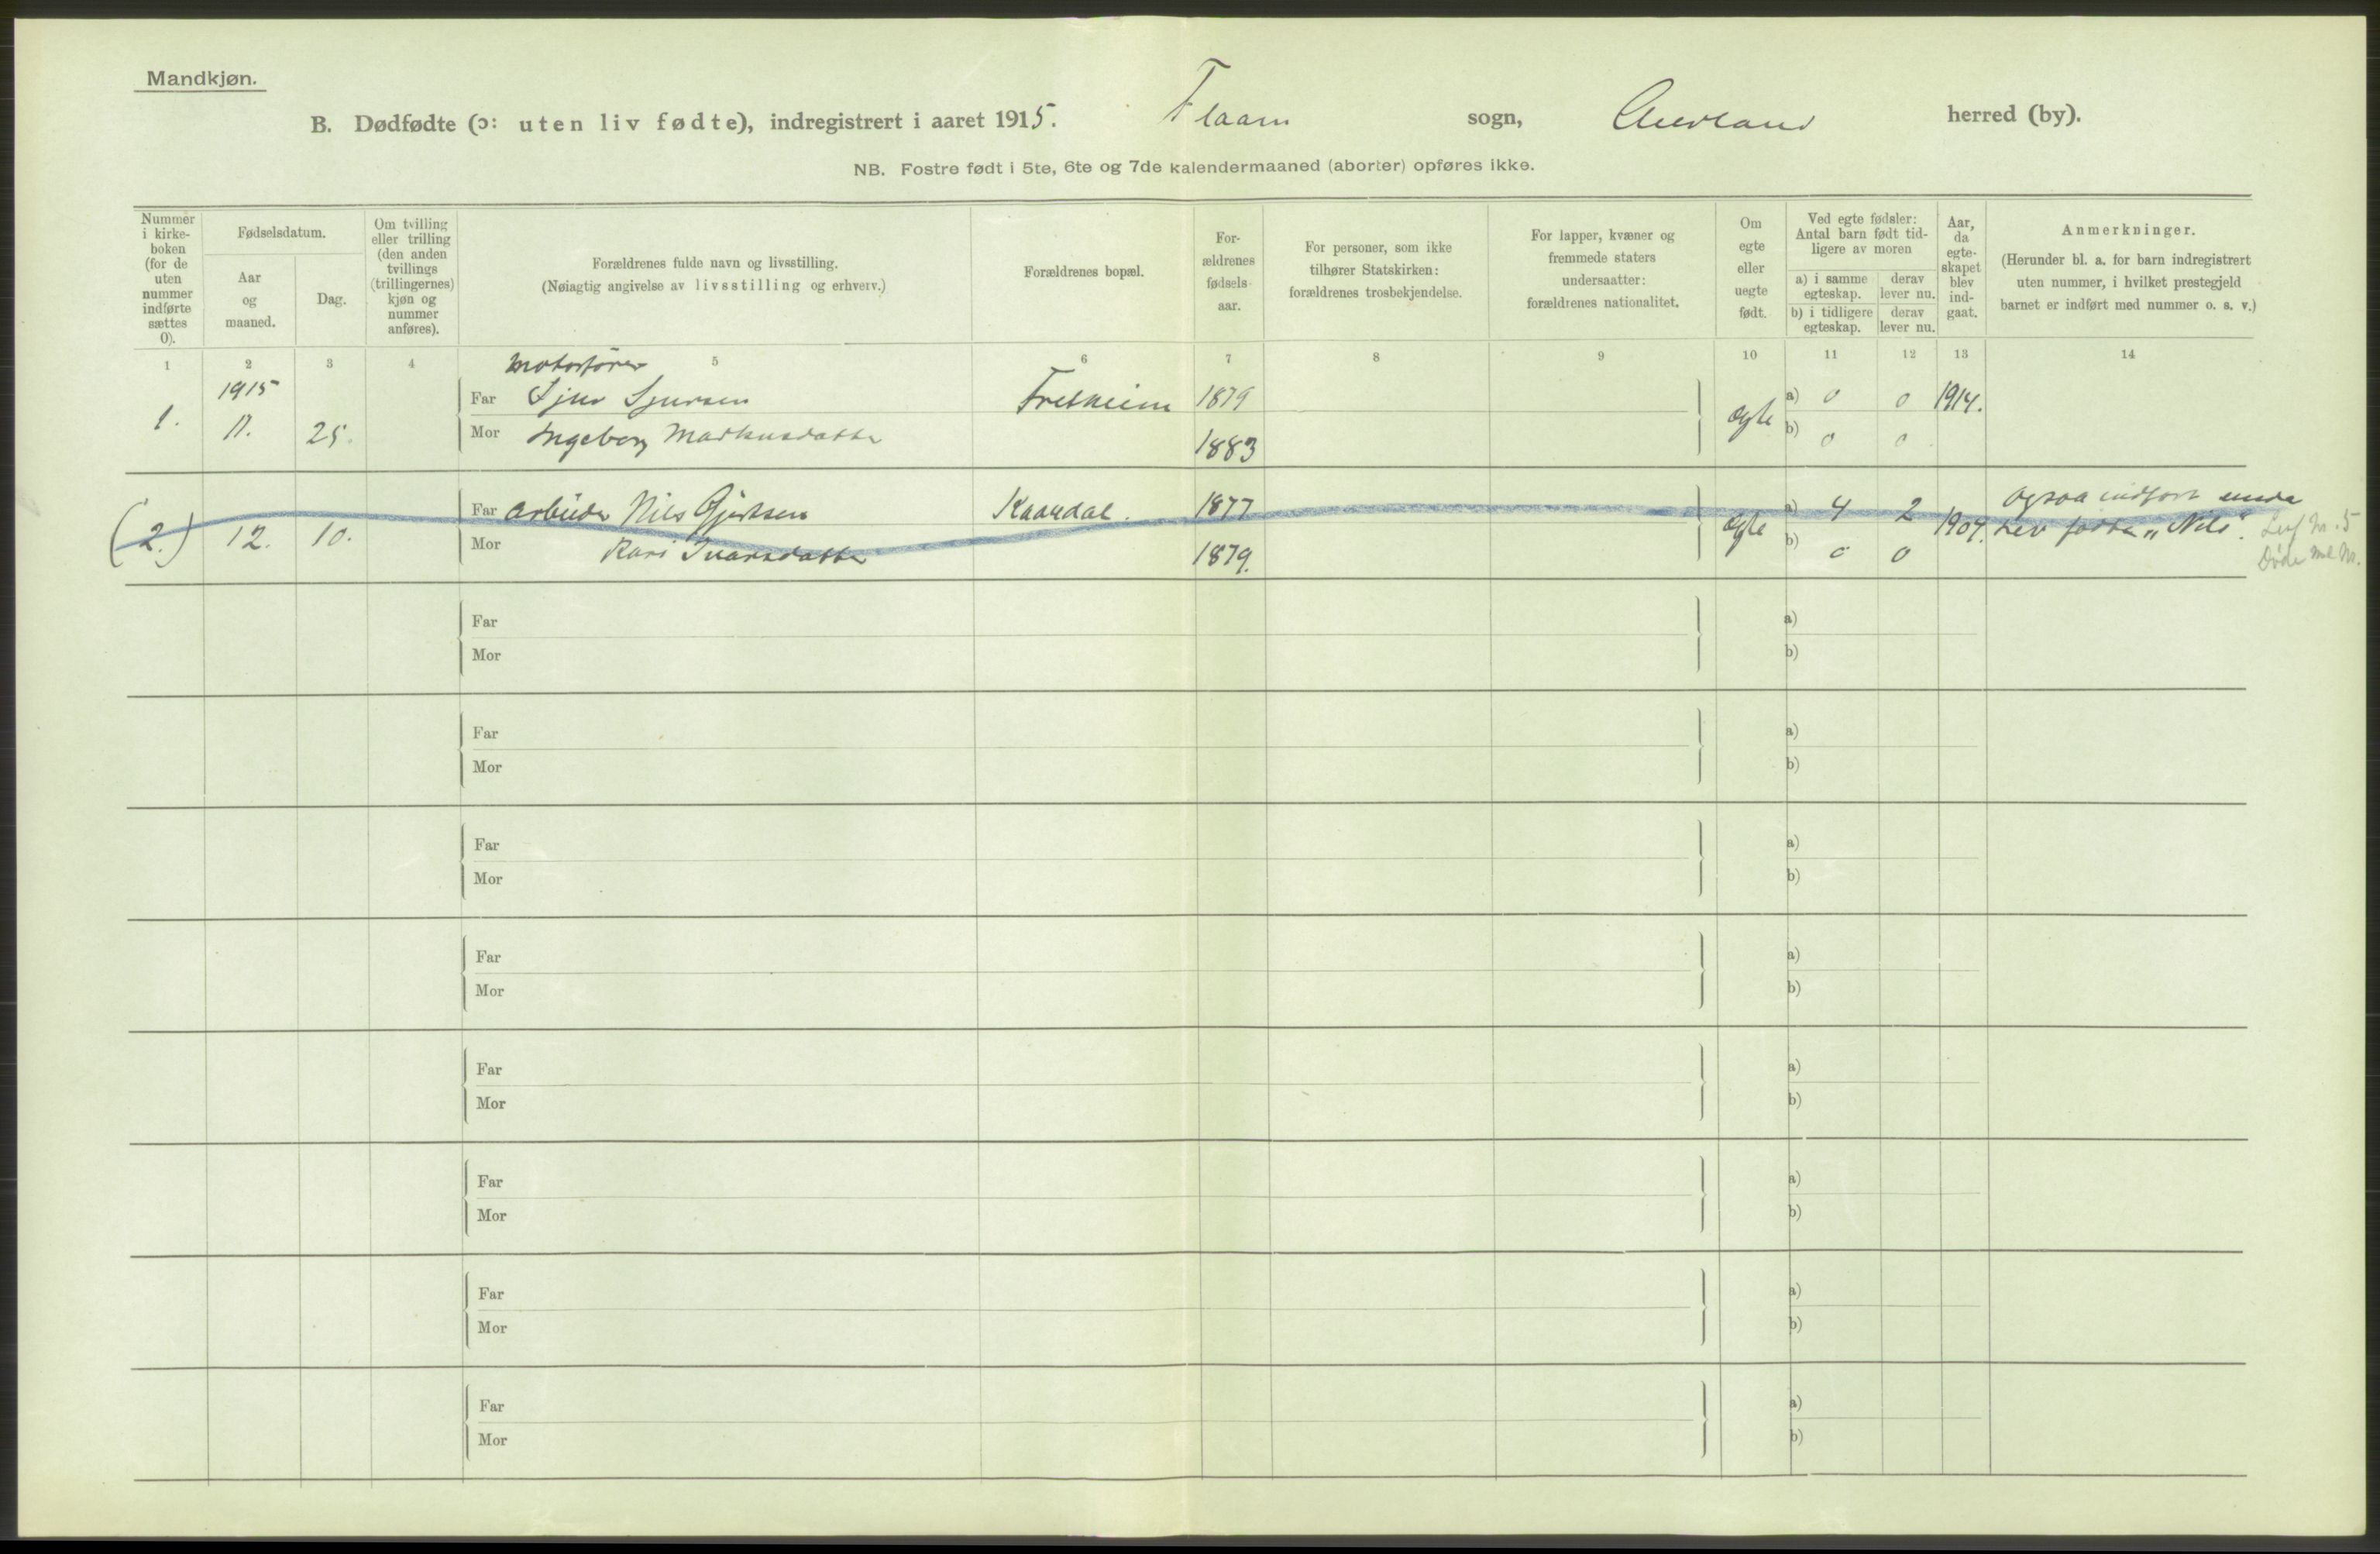 Mandkjøn.
B. Dødfødte (ɔ: uten liv fødte), indregistrert i aaret 1915. Flaam sogn, Aurland herred (by).
NB. Fostre født i 5te, 6te og 7de kalendermaaned (aborter) opføres ikke.
Nummer i kirke-boken (for de uten nummer indførte sættes 0).
Fødselsdatum.
Aar og maaned.
Dag.
Om tvilling eller trilling (den anden tvillings (trillingernes) kjøn og nummer anføres).
Forældrenes fulde navn og livsstilling.
(Nøiagtig angivelse av livsstilling og erhverv.)
Forældrenes bopæl.
For-ældrenes fødsels-aar.
For personer, som ikke tilhører Statskirken: forældrenes trosbekjendelse.
For lapper, kvæner og fremmede staters undersaatter: forældrenes nationalitet.
Om egte eller uegte født.
Ved egte fødsler: Antal barn født tid-ligere av moren
a) i samme egteskap.
derav lever nu.
b) i tidligere egteskap.
derav lever nu.
Aar, da egte-skapet blev ind-gaat.
Anmerkninger.
(Herunder bl. a. for barn indregistrert uten nummer, i hvilket prestegjeld barnet er indført med nummer o. s. v.)
1 2 3 4 5 6 7 8 9 10 11 12 13 14
Motorfører
1915
Far Sjur Sjursen Fretheim 1879 a) 0 0 1914.
1. 11. 25. Mor Ingeborg Markusdatter 1883 Egte b) 0 0
Far Arbeider Nils Gjertsen Kaardal. 1877 a) 4 2 Ogsaa indført under
(2.) 12. 10. Mor Kari Ivarsdatter 1879. Egte b) 0 0 1904. Lev fødte "Nils". Lef Nr. 5
Døde Nr.
Far a)
Mor b)
Far a)
Mor b)
Far a)
Mor b)
Far a)
Mor b)
Far a)
Mor b)
Far a)
Mor b)
Far a)
Mor b)
Far a)
Mor b)